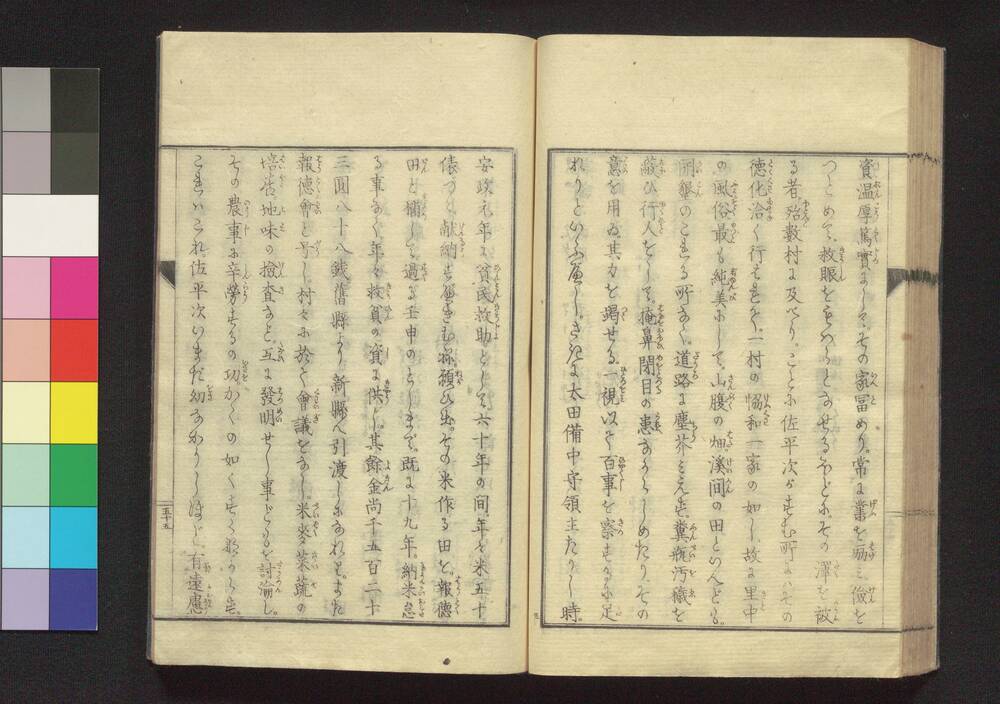 資温厚篤實にして、その家冨めり。常に業を励ミ儉を
つとめて、救賑をもはらとなせるほどに、その澤を被
る者、殆數村に及べり。ことに佐平次がすむ所にハその
德化洽く行ハれて、一村の協和一家の如し、故に里中
の風俗最も純美にして、山腹の畑溪間の田といへども、
開墾のこれる所なく、道路に塵芥ミえず、糞瓶汚穢を
蔽ひ行人をして、掩鼻閉目の患なからしめたり、その
意を用ゐ其力を竭せる、一視以て百事を察するに足
れりといふ層し。さきに太田備中守領主たりし時。
安政元年に貧民救助として、六十年の間、年々米五十
俵づゝ献納すべきむね願ひ出。その米作る田を、報德
田と稱して、過る壬申のとしまで、既に十九年。納米怠
る事なく、年々救貧の資に供し。其餘金尚千五百二十
三圓八十八錢、舊縣より新縣へ引渡しになれりと。また
報德會と号し。村々に於て會議をなし。米麥菜蔬の
培養。地味の撿査など。互に發明せし事どもを討論し。
その農事に辛勞するの功。かくの如くすくなからず。
これハこれ。佐平次いまだ幼なかりしほど。有遠慮
五十五